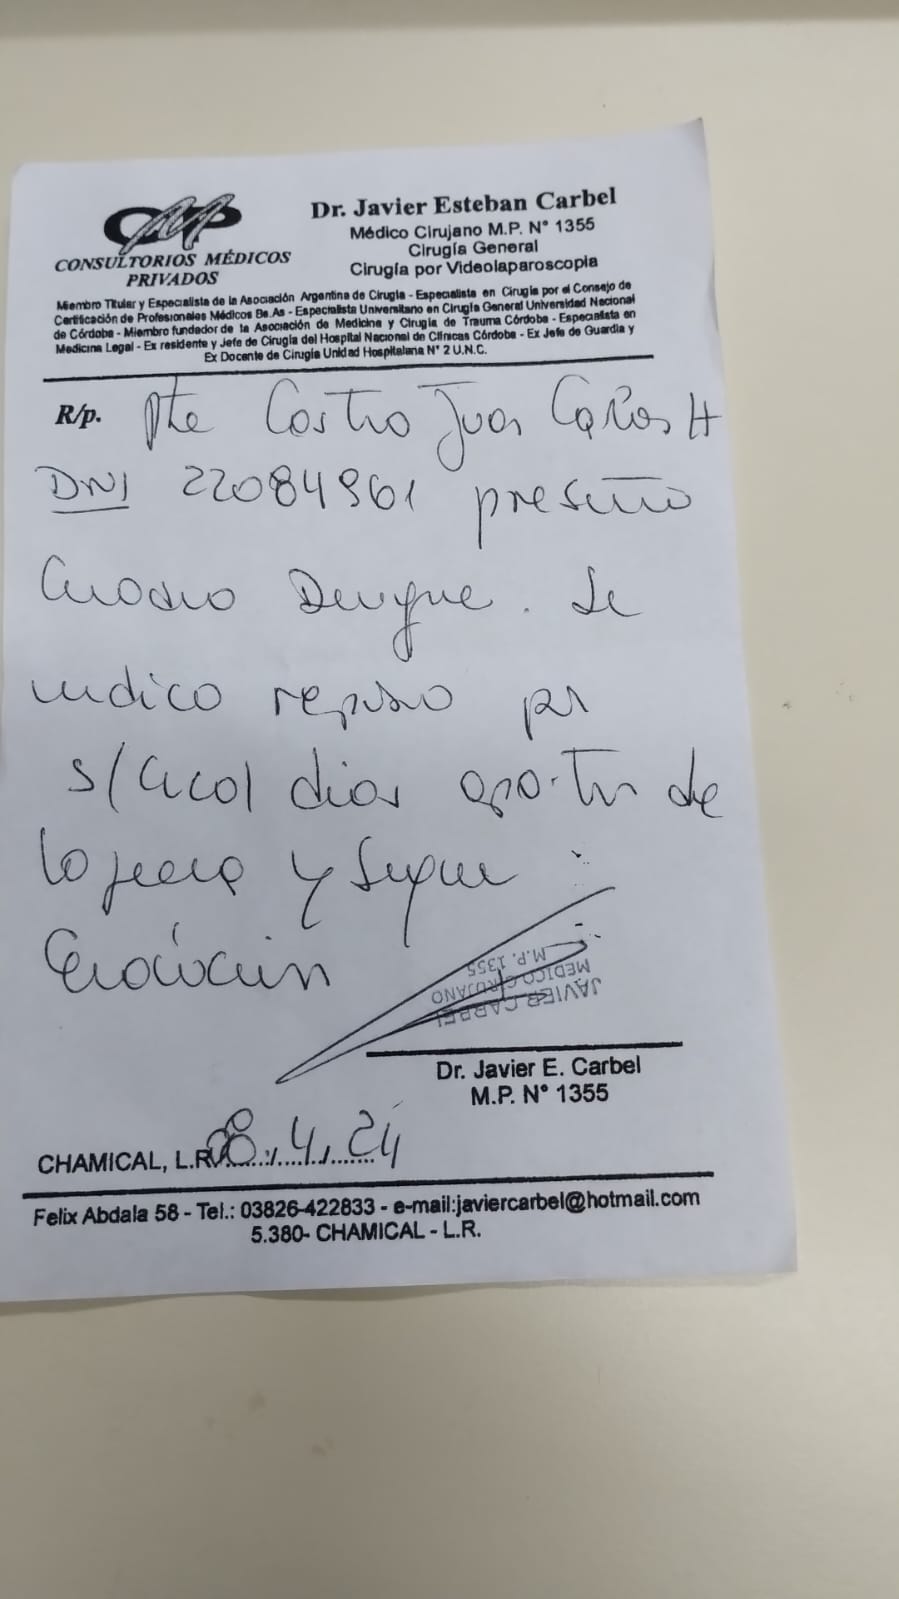 CMP
CONSULTORIOS MÉDICOS
PRIVADOS
Dr. Javier Esteban Carbel
Médico Cirujano M.P. N° 1355
Cirugía General
Cirugía por Videolaparoscopia
Miembro Titular y Especialista de la Asociación Argentina de Cirugía - Especialista en Cirugía por el Consejo de
Certificación de Profesionales Médicos Bs.As - Especialista Universitario en Cirugía General Universidad Nacional
de Córdoba - Miembro fundador de la Asociación de Medicina y Cirugía de Trauma Córdoba - Especialista en
Medicina Legal - Ex residente y Jefe de Cirugía del Hospital Nacional de Clínicas Córdoba - Ex Jefe de Guardia y
Ex Docente de Cirugía Unidad Hospitalaria N° 2 U.N.C.
R/p. Pte Castro Juan Carlos H
DNI 22084961 presento
cuadro Dengue. Se
indico reposo por
5/cinco/ dias apartir de
la fecha y segun
Evolución
JAVIER CARBEL
MEDICO CIRUJANO
M.P. 1355
Dr. Javier E. Carbel
M.P. N° 1355
CHAMICAL, L.R. 08.4.24
Felix Abdala 58 - Tel.: 03826-422833 - e-mail:javiercarbel@hotmail.com
5.380- CHAMICAL - L.R.